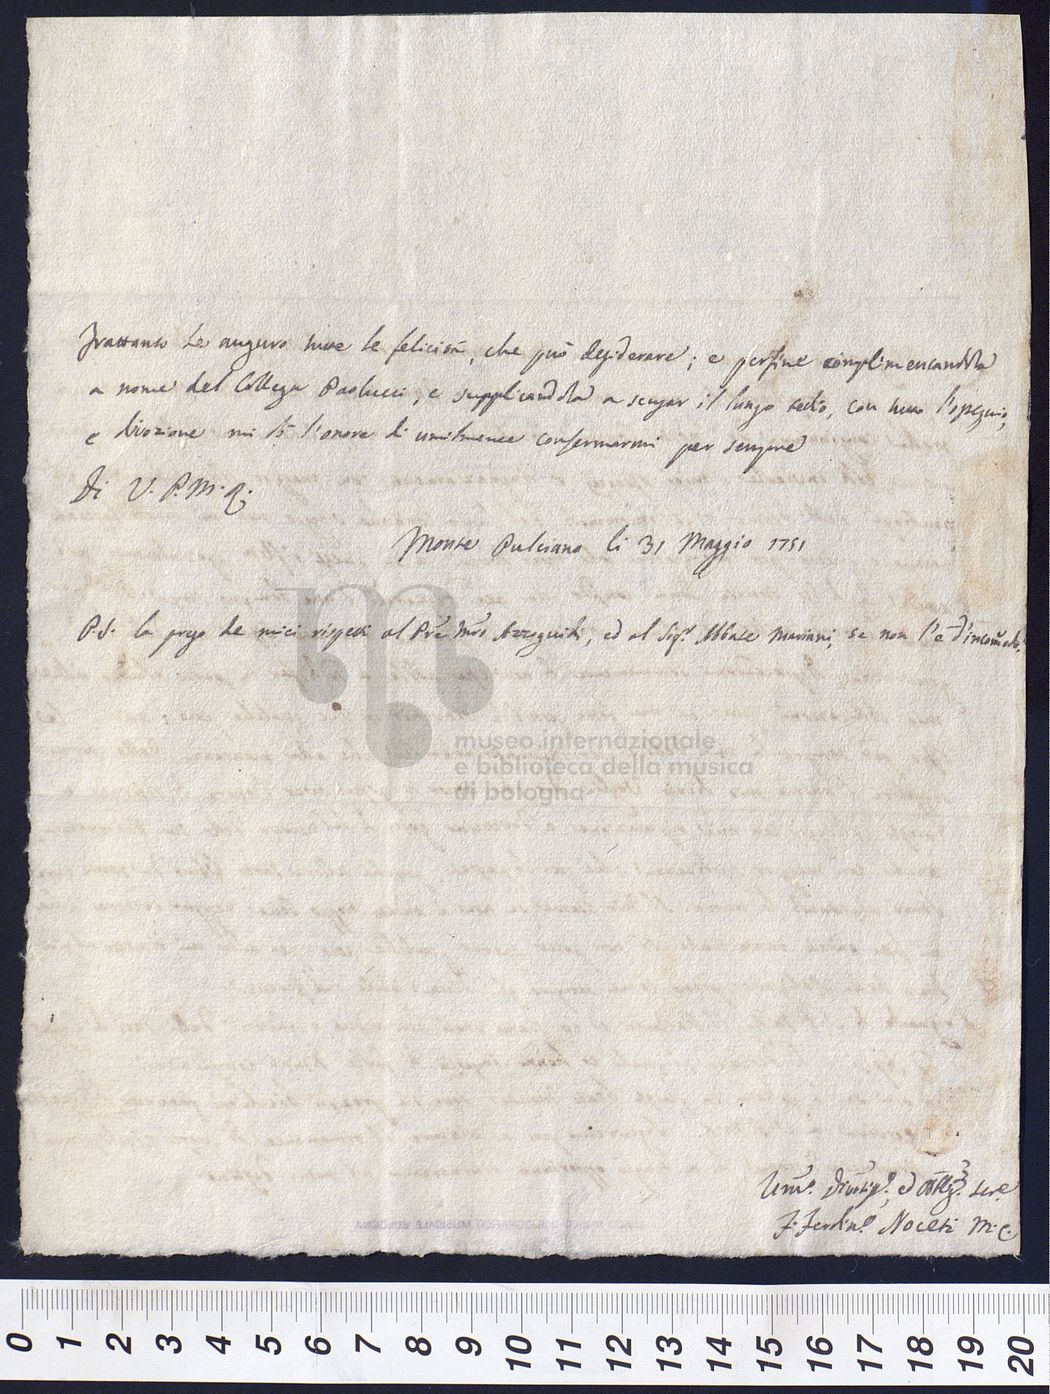 Frattanto Le auguro tutte le felicità, che può desiderare; e perfine complimentandola
a nome del Collega Paolucci, e supplicandola a scusar il lungo tedio, con tutto l'ossequio,
e divozione mi fò l'onore di umilmente confermarmi per sempre
Di V. P. M. R.
Monte Pulciano li 31 Maggio 1751
P.S. la prego de miei rispetti al Pre Mro Azzoguidi, ed al Sigr Abbate Mariani, se non l'è d'incomodo.
Umo. Divmo., ed Obblgmo. Sere
F. Ferdindo Noceti M. C.
museo internazionale
e biblioteca della musica
di bologna
0 1 2 3 4 5 6 7 8 9 10 11 12 13 14 15 16 17 18 19 20